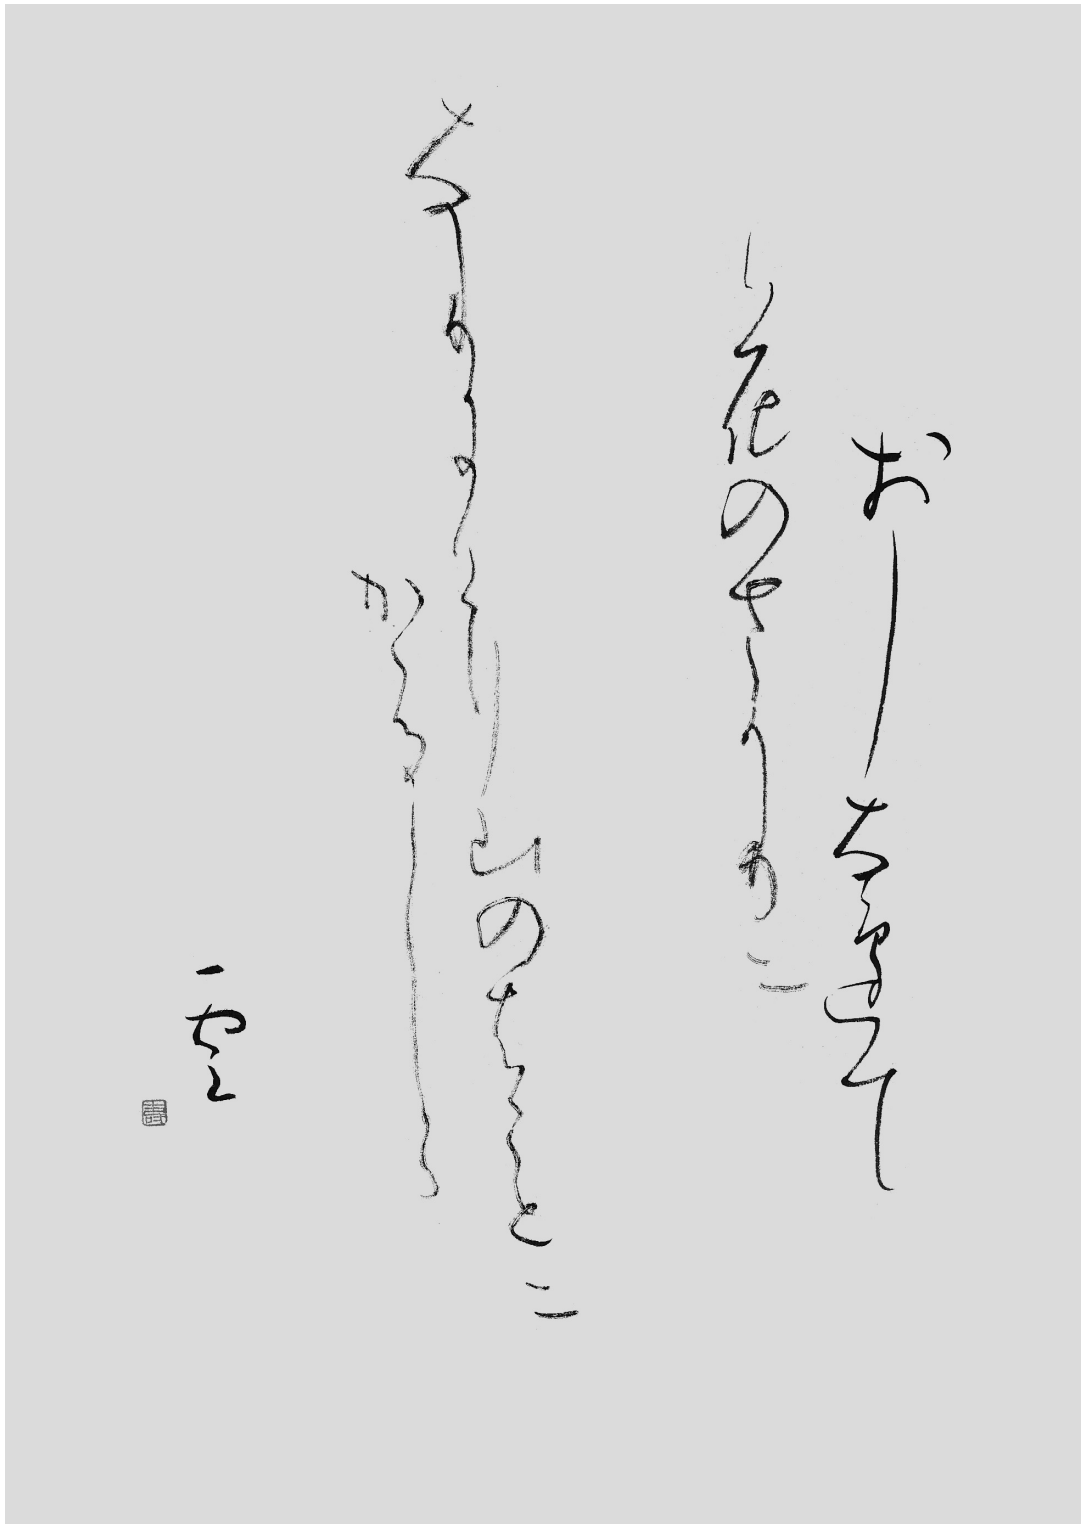 おしなへて
花のさかりに
なりにけり
山のはことに
かゝるしら
一雲